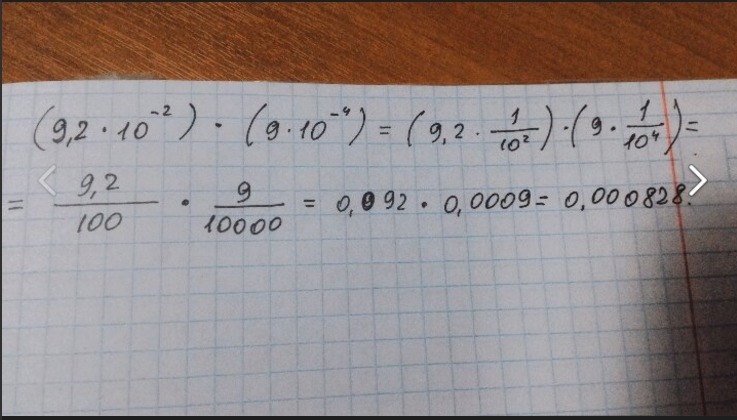 (9,2 · 10⁻²) · (9 · 10⁻⁴) = (9,2 · 1/10²) · (9 · 1/10⁴) =
= 9,2/100 · 9/10000 = 0,092 · 0,0009 = 0,000828.